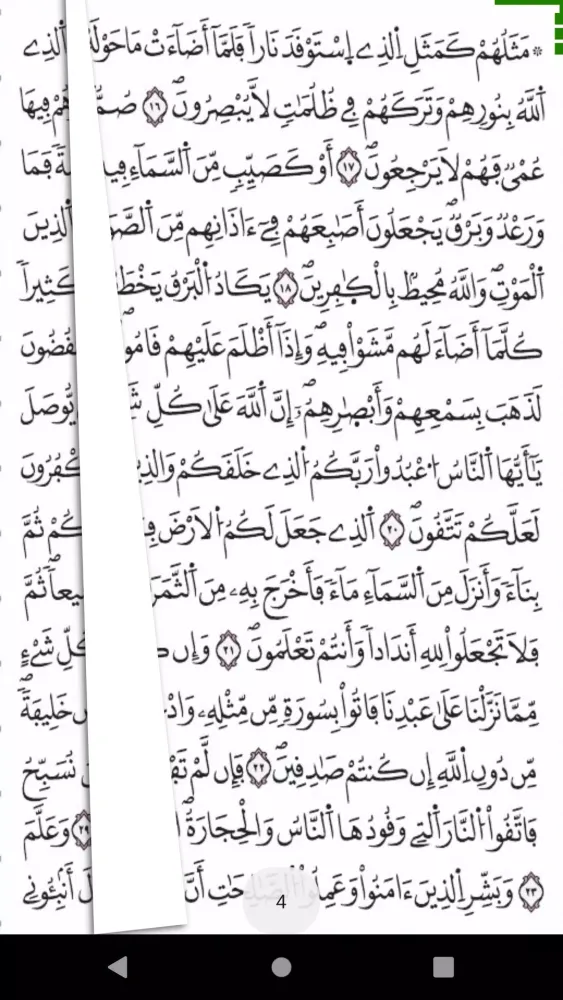 ۞ مَثَلُهُمْ كَمَثَلِ اِ۬لذِے اِ۪سْتَوْقَدَ نَاراٗ فَلَمَّآ أَضَآءَتْ مَا حَوْلَهُ اَ۬لذِے
اَ۬للَّهُ بِنُورِهِمْ وَتَرَكَهُمْ فِے ظُلُمَٰتٖ لَّا يُبْصِرُونَۖ ١٦ صُمُّ هُمْ فِيهَا
عُمْيٞ فَهُمْ لَا يَرْجِعُونَۖ ١٧ أَوْ كَصَيِّبٖ مِّنَ اَ۬لسَّمَآءِ فِي فَمَا
وَرَعْدٞ وَبَرْقٞ يَجْعَلُونَ أَصَٰبِعَهُمْ فِےٓ ءَاذَانِهِم مِّنَ اَ۬لصَّوَ اَ۬لذِينَ
اَ۬لْمَوْتِۖ وَاللَّهُ مُحِيطُۢ بِالْكٰ۪فِرِينَۖ ١٨ يَكَادُ اُ۬لْبَرْقُ يَخْطَ كَثِيراٗ
كُلَّمَآ أَضَآءَ لَهُم مَّشَوْاْ فِيهِۖ وَإِذَآ أَظْلَمَ عَلَيْهِمْ قَامُو
لَذَهَبَ بِسَمْعِهِمْ وَأَبْصٰ۪رِهِمُۥٓۖ إِنَّ اَ۬للَّهَ عَلَىٰ كُلِّ شَ يُّوصَلَ
يَٰٓأَيُّهَا اَ۬لنَّاسُ اُ۟عْبُدُواْ رَبَّكُمُ اُ۬لذِے خَلَقَكُمْ وَالذِي
لَعَلَّكُمْ تَتَّقُونَۖ ٢٠ اَ۬لذِے جَعَلَ لَكُمُ اُ۬لَارْضَ فِ كُمْ ثُمَّ
بِنَآءٗ وَأَنزَلَ مِنَ اَ۬لسَّمَآءِ مَآءٗ فَأَخْرَجَ بِهِۦ مِنَ اَ۬لثَّمَرَ يعاٗۖ ثُمَّ
فَلَا تَجْعَلُواْ لِلهِ أَندَاداٗ وَأَنتُمْ تَعْلَمُونَۖ ٢١ وَإِن كُ كُلِّ شَےْءٍ
مِّمَّا نَزَّلْنَا عَلَىٰ عَبْدِنَا فَاتُواْ بِسُورَةٖ مِّن مِّثْلِهِۦ وَادْ خَلِيفَةٗۖ
مِّن دُونِ اِ۬للَّهِ إِن كُنتُمْ صَٰدِقِينَۖ ٢٢ فَإِن لَّمْ تَفْ نُسَبِّحُ
فَاتَّقُواْ اُ۬لنَّارَ اَ۬لتِے وَقُودُهَا اَ۬لنَّاسُ وَالْحِجَارَةُ ٢٩ وَعَلَّمَ
٢٣ وَبَشِّرِ اِ۬لذِينَ ءَامَنُواْ وَعَمِلُواْ اُ۬لصَّٰلِحَٰتِ أَنَّ أَنۢبِـُٔونِے
4